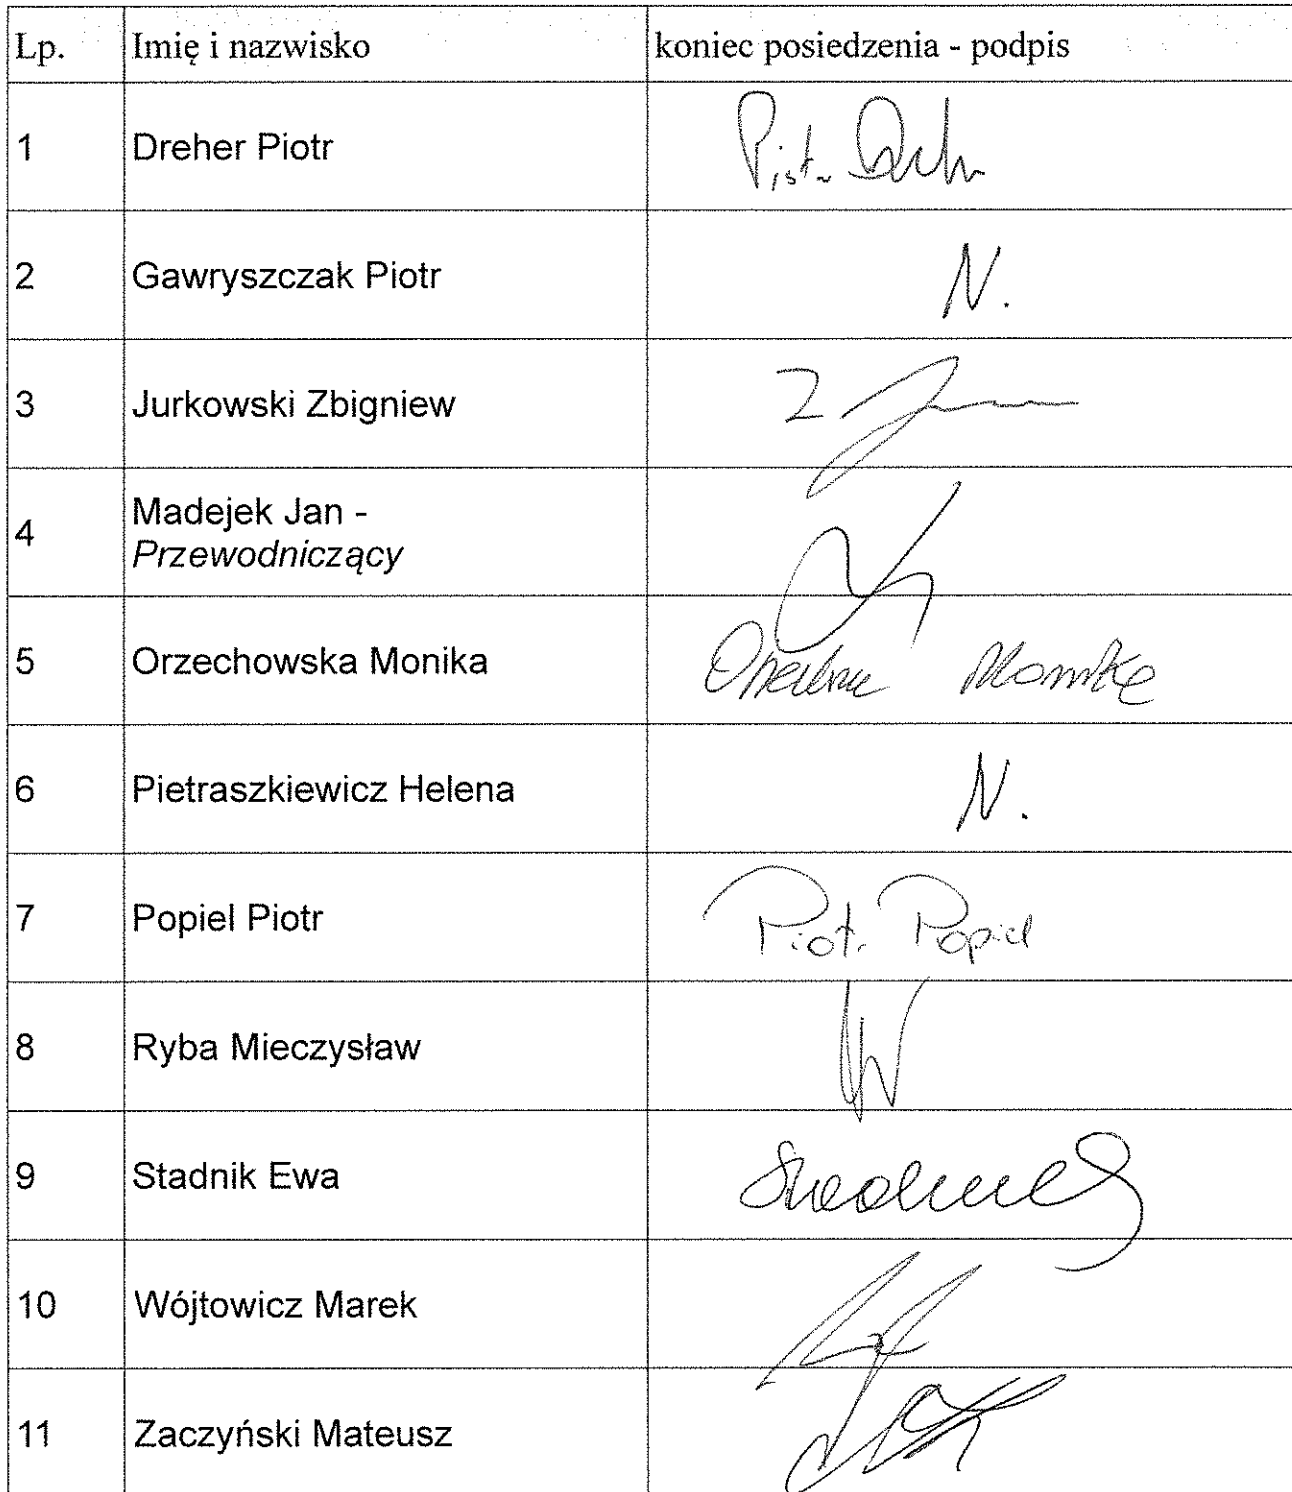 Lp. Imię i nazwisko koniec posiedzenia - podpis
1 Dreher Piotr
2 Gawryszczak Piotr N.
3 Jurkowski Zbigniew
4 Madejek Jan -
Przewodniczący
5 Orzechowska Monika
6 Pietraszkiewicz Helena N.
7 Popiel Piotr Piotr Popiel
8 Ryba Mieczysław
9 Stadnik Ewa
10 Wójtowicz Marek
11 Zaczyński Mateusz